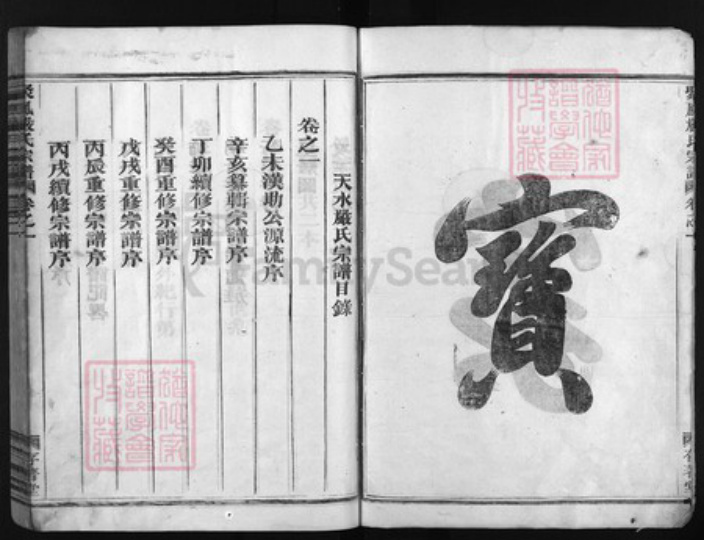 寶
天水嚴氏宗譜目錄
卷之一
乙未漢助公源流序
辛亥纂輯宗譜序
丁卯續修宗譜序
癸酉重修宗譜序
戊戌重修宗譜序
丙辰重修宗譜序
丙戌續修宗譜序
FamilySearch
譜學會